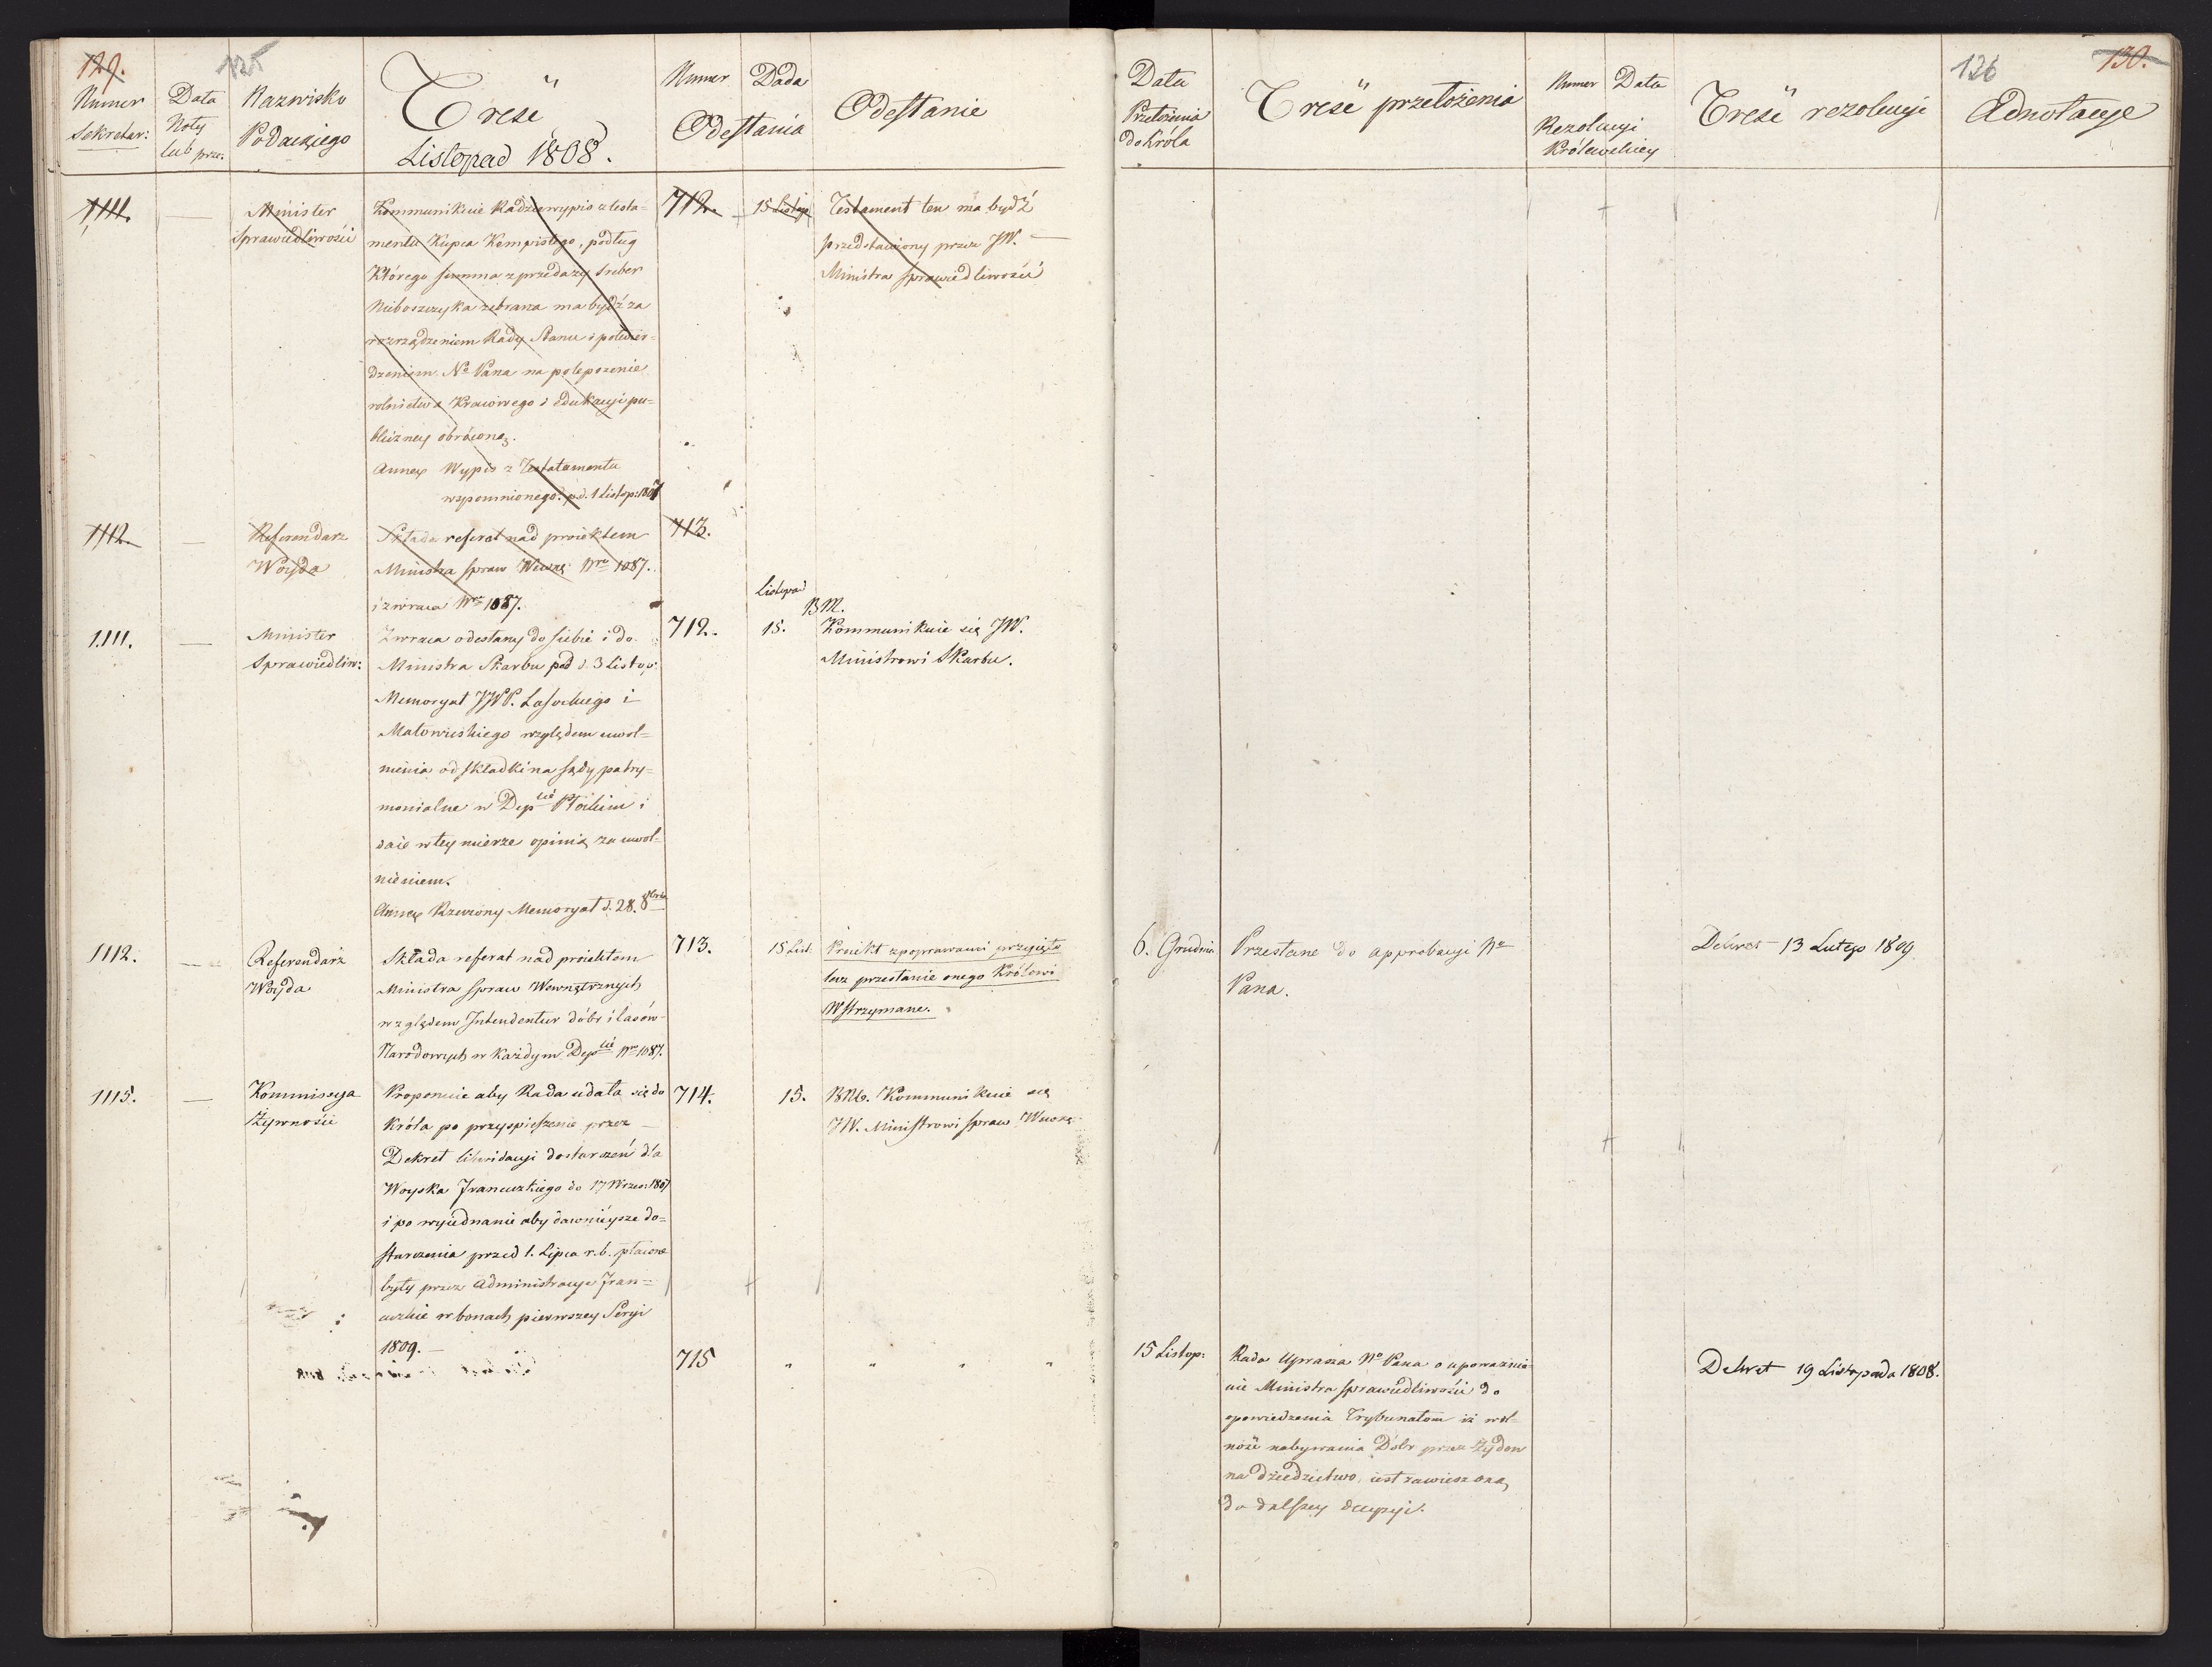 129.
125
Numer
Sekretar:
Data
Noty
lub prze:
Nazwisko
Podaiącego
Treść
Listopad 1808.
Numer
Dada
Odesłania
Odesłanie
1111.
Minister
Sprawiedliwości
Kommunikuie Radzie wypis z testa=
mentu Kupca Kempistego, podług
Którego summa z przedaży sreber
Nieboszczyka zebrana ma bydź za
rozrządzeniem Rady Stanu i potwier=
dzeniem No Pana na polepszenie
rolnictwa Kraiowego i edukacyi pu=
bliczney obrócona.
Annex Wypis z Testatamentu
wspomnionego. p. d. 1 Listop: 1807
712.
15 Listop
Testament ten ma bydź
przedstawiony przez JW.
Ministra Sprawiedliwości
1112.
Referendarz
Woyda
Składa referat nad proiektem
Ministra spraw Wewnę: Nro 1087.
i zwraca Nro 1087.
713.
1111.
Minister
Sprawiedliw:
Zwraca odesłany do siebie i do
Ministra Skarbu pod d. 3 Listop:
Memoryał JWP. Lasockiego i
Małowieskiego względem uwol=
nienia od składki na sądy patry=
monialne w Depcie Płockim i
daie w tey mierze opinią za uwol=
nieniem.
Annex Rzeczony Memoryał d. 28. 8bra
712.
Listopad
15.
BM.
Kommunikuie się JW.
Ministrowi Skarbu.
1112.
Referendarz
Woyda
Składa referat nad proiektem
Ministra spraw Wewnętrznych
względem Intendentur dóbr i lasów
Narodowych w każdym Depcie Nro 1087.
713.
15 List.
Proiekt z poprawami przyięto
lecz przesłanie onego Królowi
Wstrzymane.
1115.
Kommissya
Żywności
Proponuie aby Rada udała się do
Króla po przyspieszenie przez
Dekret likwidacyi dostarczeń dla
Woyska Francuzkiego do 17 Wrzes: 1807
i po wyiednanie aby dawnieysze do=
starczenia przed 1. Lipca r. b. płacone
były przez Administracye Fran=
cuzkie w bonach pierwszey Seryi
1809.
714.
15.
BM. Kommunikuie się
JW. Ministrowi spraw Wewnę
715
" " " "
126
130.
Data
Przełożenia
do Króla
Treść przełożenia
Numer
Data
Rezolucyi
Królewskiey
Treść rezolucyi
Adnotacye
6. Grudnia
Przesłane do approbacyi No
Pana.
Dekret 13 Lutego 1809
15 Listop:
Rada Uprasza No Pana o upoważnie
nie Ministra sprawiedliwości do
opowiedzenia Trybunałom iż wol=
ność nabywania Dóbr przez Żydow
na dziedzictwo, iest zawieszoną
do dalszey decyzyi.
Dekret 19 Listopada 1808.